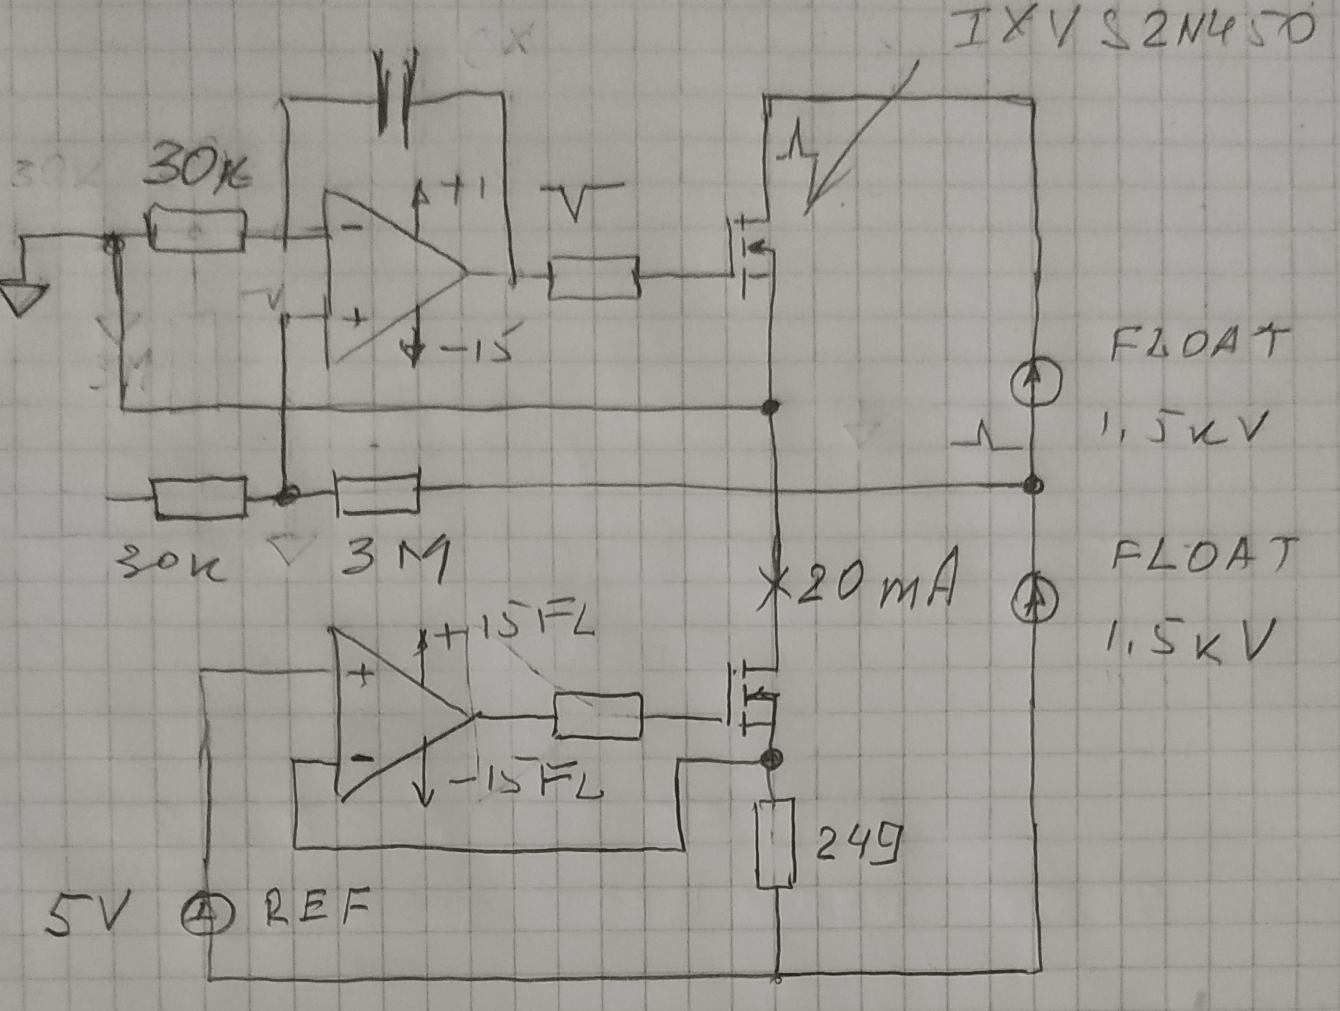 IXVS2N450
30K
-
+1
+
-15
FLOAT
1,5KV
30K
3M
20mA
FLOAT
1.5KV
+15FL
+
-
-15FL
249
5V
REF